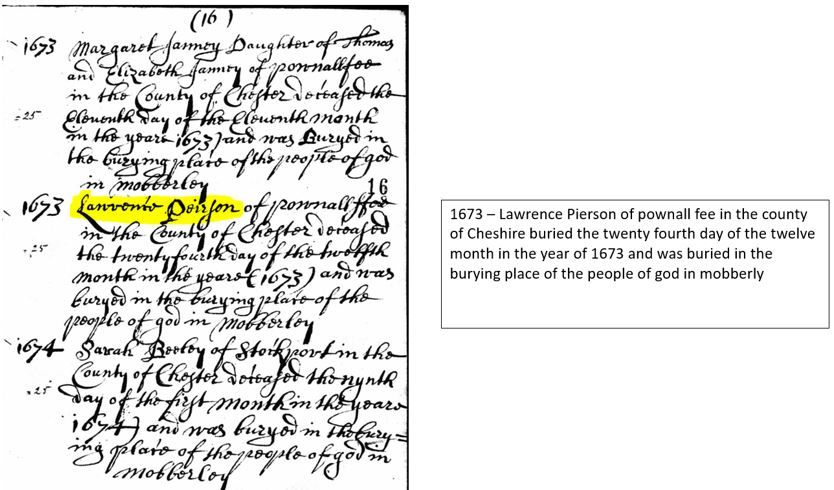 (16)
1673 Margaret Janney Daughter of Thomas
and Elizabeth Janney of pownallfee
in the County of Chester deceased the
25 Eleventh day of the Eleventh month
in the yeare 1673) and was Buryed in
the burying place of the people of god
in mobberley
16
1673 Lawrence Peirson of pownallffee
in the County of Chester deceased
25 the twentyfourth day of the twelfth
month in the yeare (1673) and was
buryed in the burying place of the
people of god in mobberley
1674 Sarah Beeley of Stockport in the
County of Chester deceased the nynth
25 day of the first month in the yeare
1674) and was buryed in the bury=
ing place of the people of god in
mobberley
1673 – Lawrence Pierson of pownall fee in the county
of Cheshire buried the twenty fourth day of the twelve
month in the year of 1673 and was buried in the
burying place of the people of god in mobberly